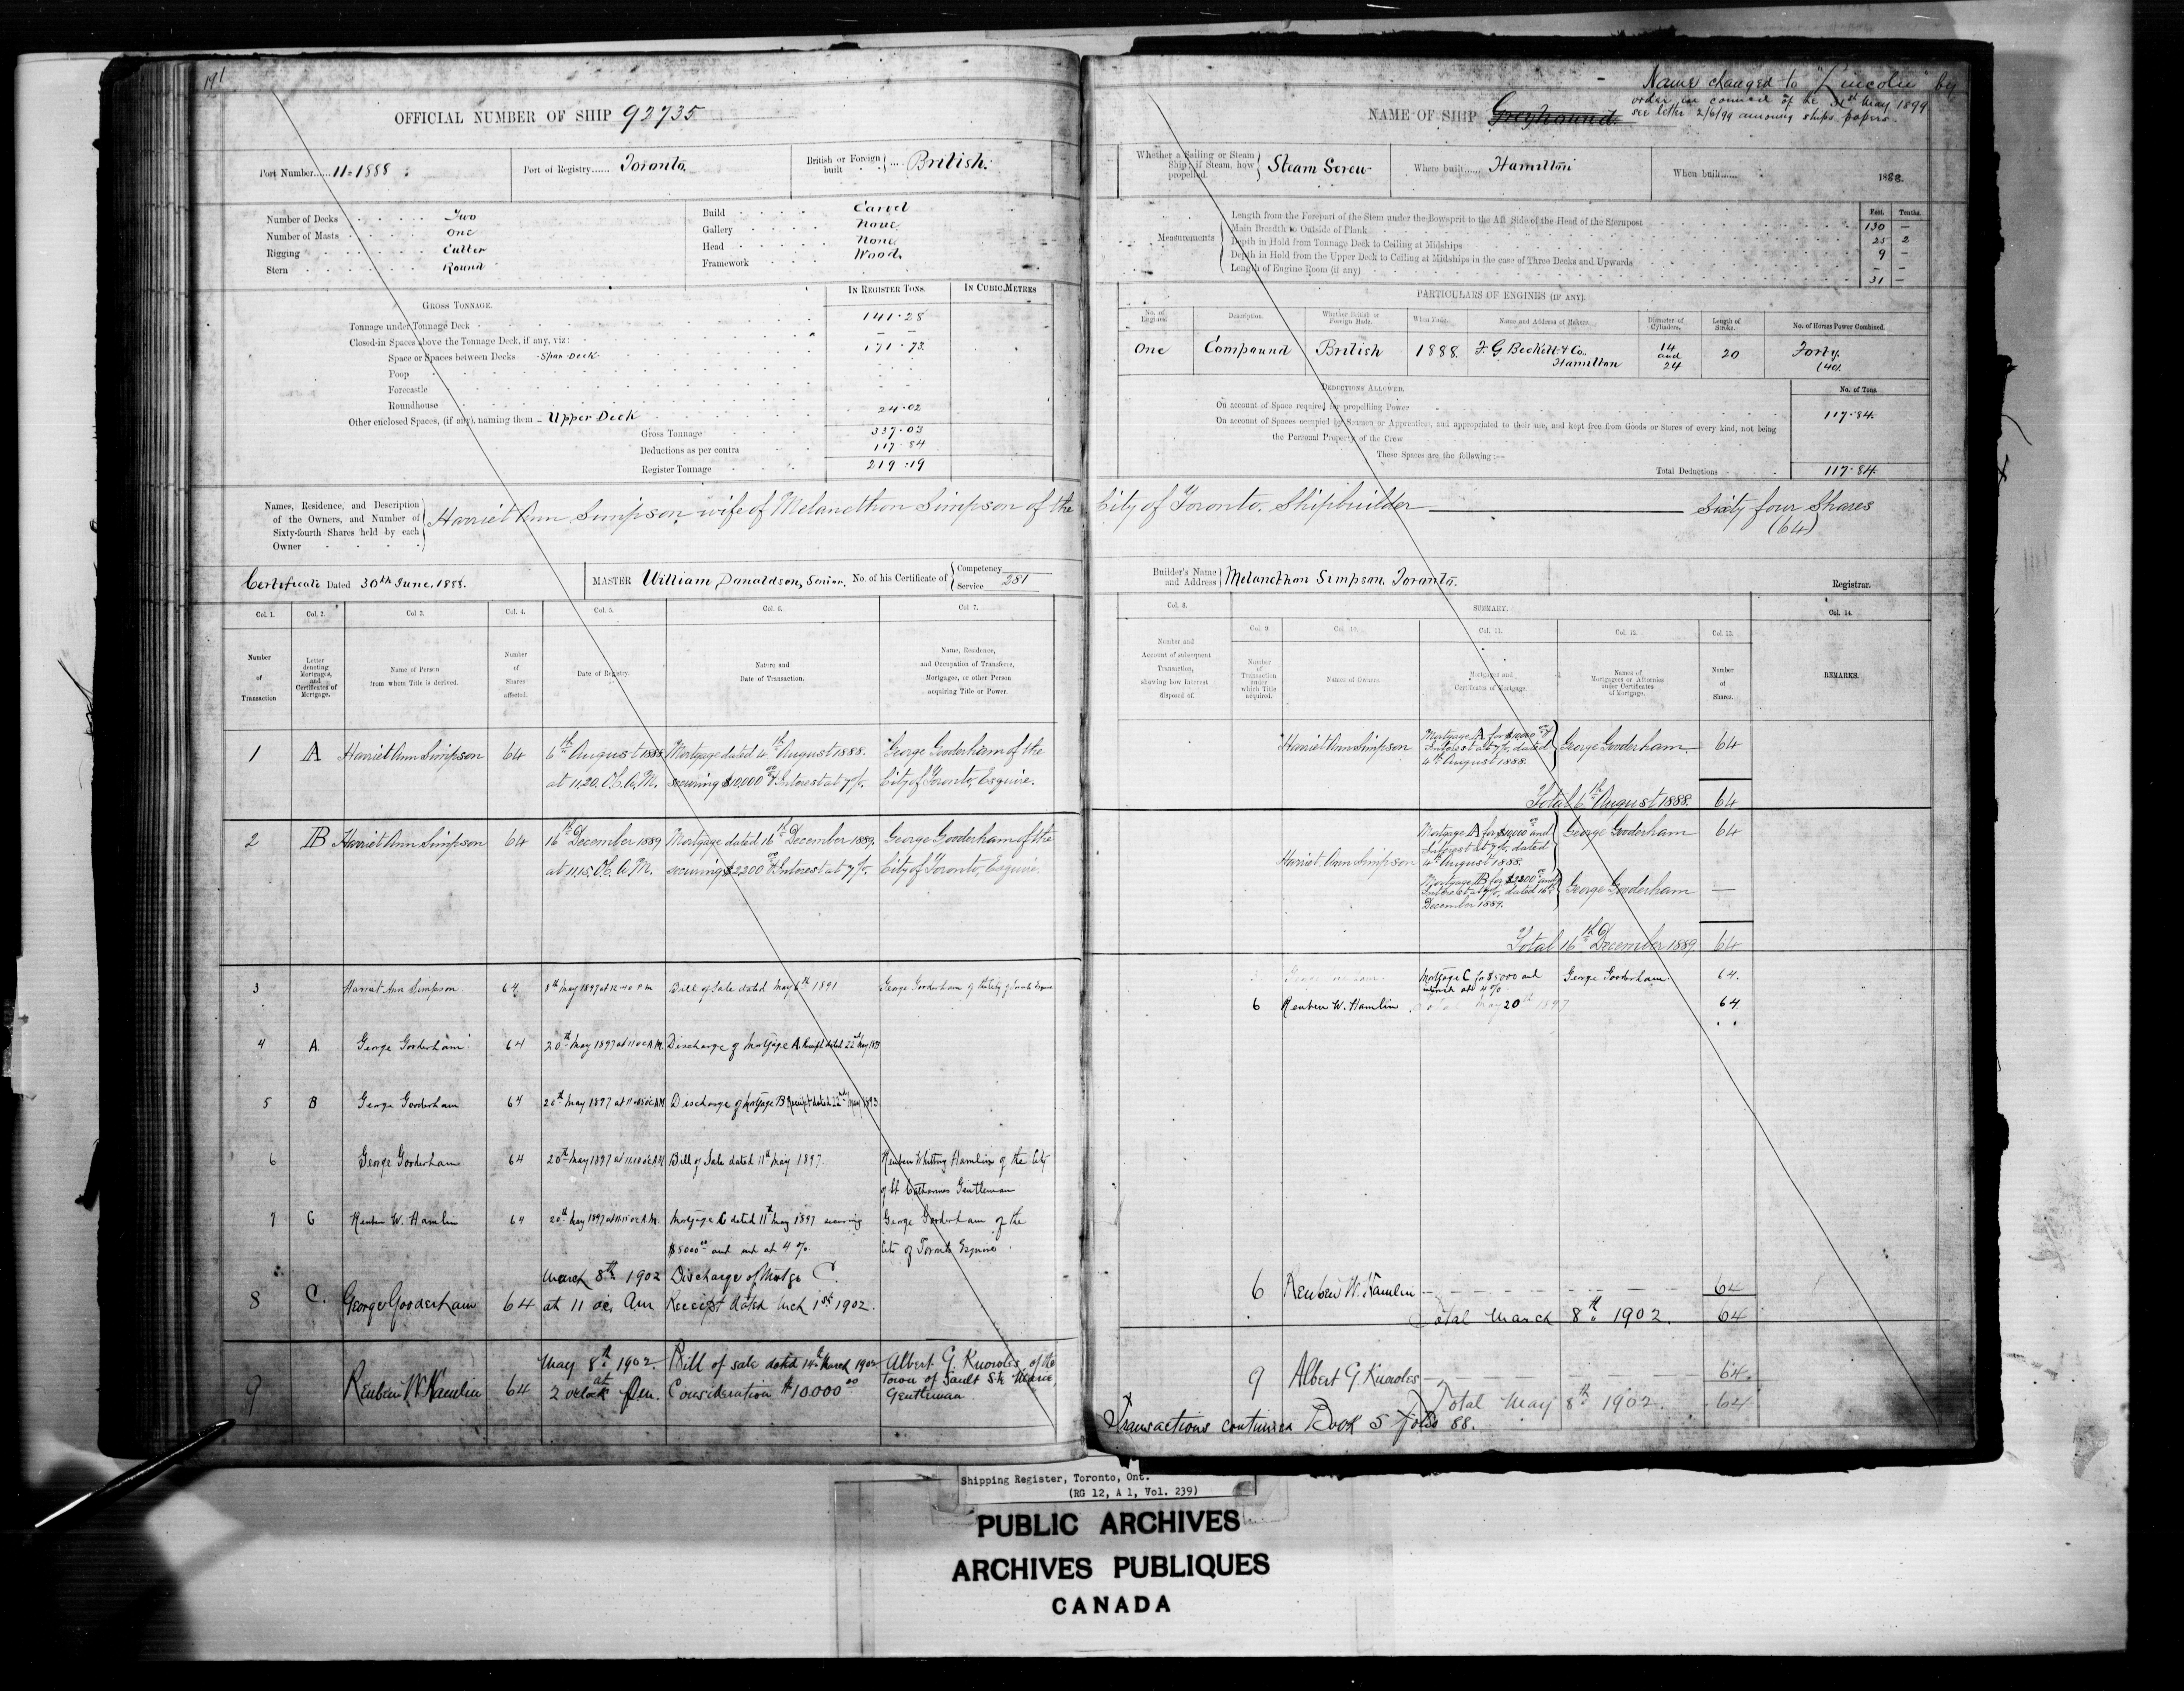 191
OFFICIAL NUMBER OF SHIP 92735
Port Number...... 11-1888
Port of Registry...... Toronto.
British or Foreign built .... British.
Number of Decks Two
Number of Masts One
Rigging Cutter
Stern Round
Build Carvel
Gallery None
Head None
Framework Wood.
GROSS TONNAGE.
IN REGISTER TONS.
IN CUBIC METRES
Tonnage under Tonnage Deck 141.28
Closed-in Spaces above the Tonnage Deck, if any, viz:
Space or Spaces between Decks Spar Deck 171.73
Poop
Forecastle
Roundhouse
Other enclosed Spaces, (if any), naming them - Upper Deck 24.02
Gross Tonnage 337.03
Deductions as per contra 117.84
Register Tonnage 219.19
Names, Residence, and Description of the Owners, and Number of Sixty-fourth Shares held by each Owner
Harriet Ann Simpson, wife of Melancthon Simpson of the
Certificate Dated 30th June, 1888.
MASTER William Donaldson, Senior. No. of his Certificate of Competency Service 381
Col. 1. Col. 2. Col 3. Col. 4. Col. 5. Col. 6. Col 7.
Number of Transaction
Letter denoting Mortgages, and Certificates of Mortgage.
Name of Person from whom Title is derived.
Number of Shares affected.
Date of Registry.
Nature and Date of Transaction.
Name, Residence, and Occupation of Transferee, Mortgagee, or other Person acquiring Title or Power.
1 A Harriet Ann Simpson 64 6th August 1888 Mortgage dated 4th August 1888. George Gooderham of the
at 11.20. O'C. A.M. securing $10,000 00 & Interest at 7%. City of Toronto, Esquire.
2 B Harriet Ann Simpson 64 16th December 1889 Mortgage dated 16th December 1889. George Gooderham of the
at 11.15. O'C. A.M. securing $2,200 00 & Interest at 7%. City of Toronto, Esquire.
3 Harriet Ann Simpson 64 8th May 1897 at Bill of Sale dated May 6th 1891 George Gooderham of the City of Toronto Esquire
4 A. George Gooderham 64 20th May 1897 at 11 oc A.M. Discharge of Mortgage A. Receipt dated 22nd May
5 B George Gooderham 64 20th May 1897 at Discharge of Mortgage B Receipt dated 22nd May 1893
6 George Gooderham 64 20th May 1897 at Bill of Sale dated 11th May 1897. Reuben Whitting Hamlin of the City
of St Catharines Gentleman
7 C Reuben W. Hamlin 64 20th May 1897 at Mortgage C dated 11th May 1897 securing George Gooderham of the
$5000 00 and int at 4% City of Toronto Esquire
March 8th 1902 Discharge of Mortge C.
8 C. George Gooderham 64 at 11 oc. Am Receipt dated Mch 1st 1902.
May 8th 1902 Bill of sale dated 14th March 1902 Albert G. Knowles, of the
9 Reuben W. Hamlin 64 at 2 oclock Pm. Consideration $10000 00 Town of Sault Ste Marie,
Gentleman
Name changed to "Lincoln" by
order in council of the 31st May 1899
see letter 2/6/99 among ships papers.
NAME OF SHIP Greyhound
Whether a Sailing or Steam Ship; if Steam, how propelled. Steam Screw
Where built...... Hamilton
When built...... 1888.
Measurements
Feet. Tenths.
Length from the Forepart of the Stem under the Bowsprit to the Aft Side of the Head of the Sternpost 130 —
Main Breadth to Outside of Plank 25 2
Depth in Hold from Tonnage Deck to Ceiling at Midships 9 —
Depth in Hold from the Upper Deck to Ceiling at Midships in the case of Three Decks and Upwards – –
Length of Engine Room (if any) 31 —
PARTICULARS OF ENGINES (IF ANY).
No. of Engines. Description. Whether British or Foreign Made. When Made. Name and Address of Maker. Diameter of Cylinders. Length of Stroke. No. of Horses Power Combined.
One Compound British 1888. F. G. Beckett & Co. Hamilton 14 and 24 20 Forty. (40).
DEDUCTIONS ALLOWED.
No. of Tons.
On account of Space required for propelling Power 117.84.
On account of Spaces occupied by Seamen or Apprentices, and appropriated to their use, and kept free from Goods or Stores of every kind, not being
the Personal Property of the Crew
These Spaces are the following:—
Total Deductions 117.84.
City of Toronto. Shipbuilder Sixty four Shares
(64)
Builder's Name and Address Melancthon Simpson. Toronto.
Registrar.
Col. 8. SUMMARY. Col. 14.
Col. 9. Col. 10. Col. 11. Col. 12. Col. 13.
Number and Account of subsequent Transaction, showing how Interest disposed of.
Number of Transaction under which Title acquired.
Names of Owners.
Mortgages and Certificates of Mortgage.
Names of Mortgagees or Attornies under Certificates of Mortgage.
Number of Shares.
REMARKS.
Harriet Ann Simpson Mortgage A for $10,000 00 & Interest at 7%, dated 4th August 1888. George Gooderham. 64
Total 6th August 1888. 64
Harriet Ann Simpson Mortgage A for $10,000 00 and Interest at 7%, dated 4th August 1888. George Gooderham 64
Mortgage B for $2200 00 and Interest at 7%, dated 16th December 1889. George Gooderham —
Total 16th December 1889 64
Mortgage C for $5000 and at 4% George Gooderham. 64.
6 Reuben W. Hamlin Total May 20th 1897 64
6 Reuben W. Hamlin 64
Total March 8th 1902. 64
9 Albert G Knowles 64.
Total May 8th 1902. 64
Transactions continued Book S folio 88.
Shipping Register, Toronto, Ont.
(RG 12, A 1, Vol. 239)
PUBLIC ARCHIVES
ARCHIVES PUBLIQUES
CANADA